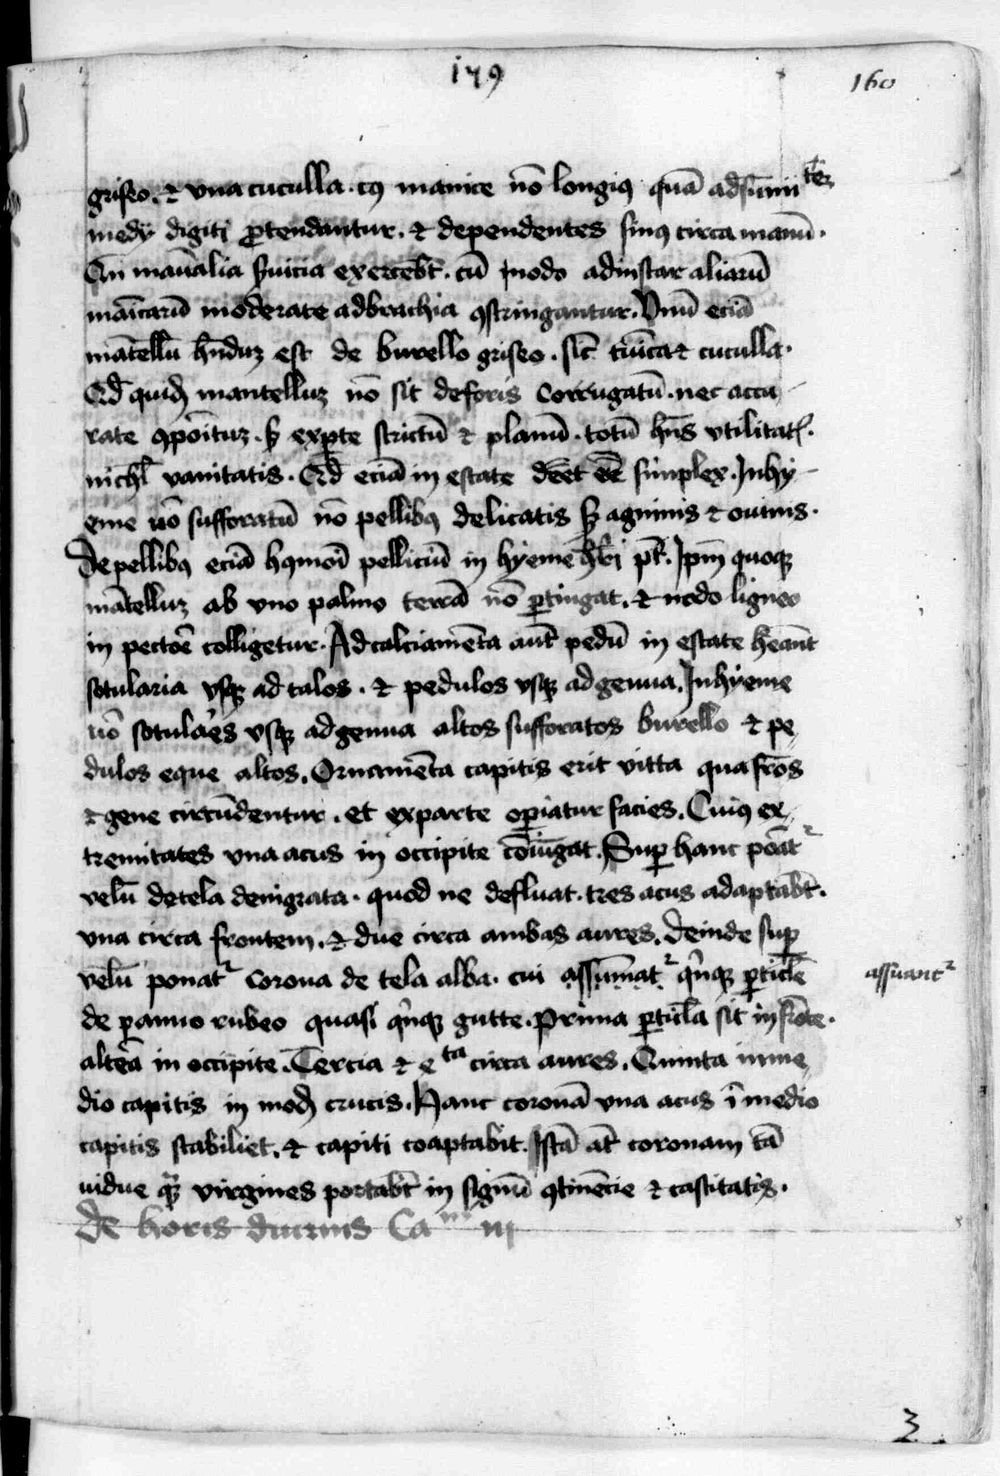 179
160
griseo. ⁊ vna cuculla. cꝰ manice nō longiꝰ quā ad sūmi
medij digiti ꝓtendantur. ⁊ dependentes sinꝰ circa manū.
Qn̄ manualia ẜuicia exercebt. cū modo ad instar aliarū
manicarū moderate ad brachia ꝯstringantur. Vnū eciā
mātellū hn̄duꝫ est de burello griseo. sic̄ tūica ⁊ cuculla.
Qd̄ quidē mantelluꝫ nō sit deforis corrugatū. nec accu
rate ꝯpōituꝫ. ẜꝫ ex ꝑte strictū ⁊ planū. totū hn̄s vtilitatꝭ.
nichl̄ vanitatis. Qd̄ eciā in estate dēt ēē simplex. In hy
eme uō sufforatū nō pellibꝰ delicatis ẜꝫ agninis ⁊ ouinis.
De pellibꝰ eciā hꝯmōi pelliciū in hyeme hr̄i pt̄. Ipm̄ quoqꝫ
mātelluꝫ ab vno palmo terrā nō ꝑtingat. ⁊ nodo ligneo
in pectoē colligetur. Ad calciamēta aut̄ pedū in estate heānt
sotularia vsqꝫ ad talos. ⁊ pedulos vsqꝫ ad genua. In hyeme
uō sotulaēs vsqꝫ ad genua altos sufforatos burello ⁊ pe
dulos eque altos. Ornamēta capitis erit vitta qua frōs
⁊ gene circūdentur. et ex parte oꝑiatur facies. Cuiꝰ ex
tremitates vna acus in occipite cōiūgat. Suꝑ hanc pōatʳ
velū de tela denigrata. quod ne defluat. tres acus adaptabt̄.
vna circa frontem. ⁊ due circa ambas aures. Deinde suꝑ
velū ponatʳ corona de tela alba. cui assūmatʳ qͥnqꝫ ꝑticl̄e
assuantʳ
de panno rubeo quasi qͥnqꝫ gutte. Prima ꝑticl̄a sit in frōte.
altēa in occipite. Tercia ⁊ 4ta circa aures. Quinta in me
dio capitis in modū crucis. Hanc coronā vna acus ī medio
capitis stabiliet. ⁊ capiti coaptabit. Istā at̄ coronam tā
uidue qͣꝫ virgines portabt̄ in signū ꝯtinēcie ⁊ castitatis.
De horis diurnis Caᵐ iij
3